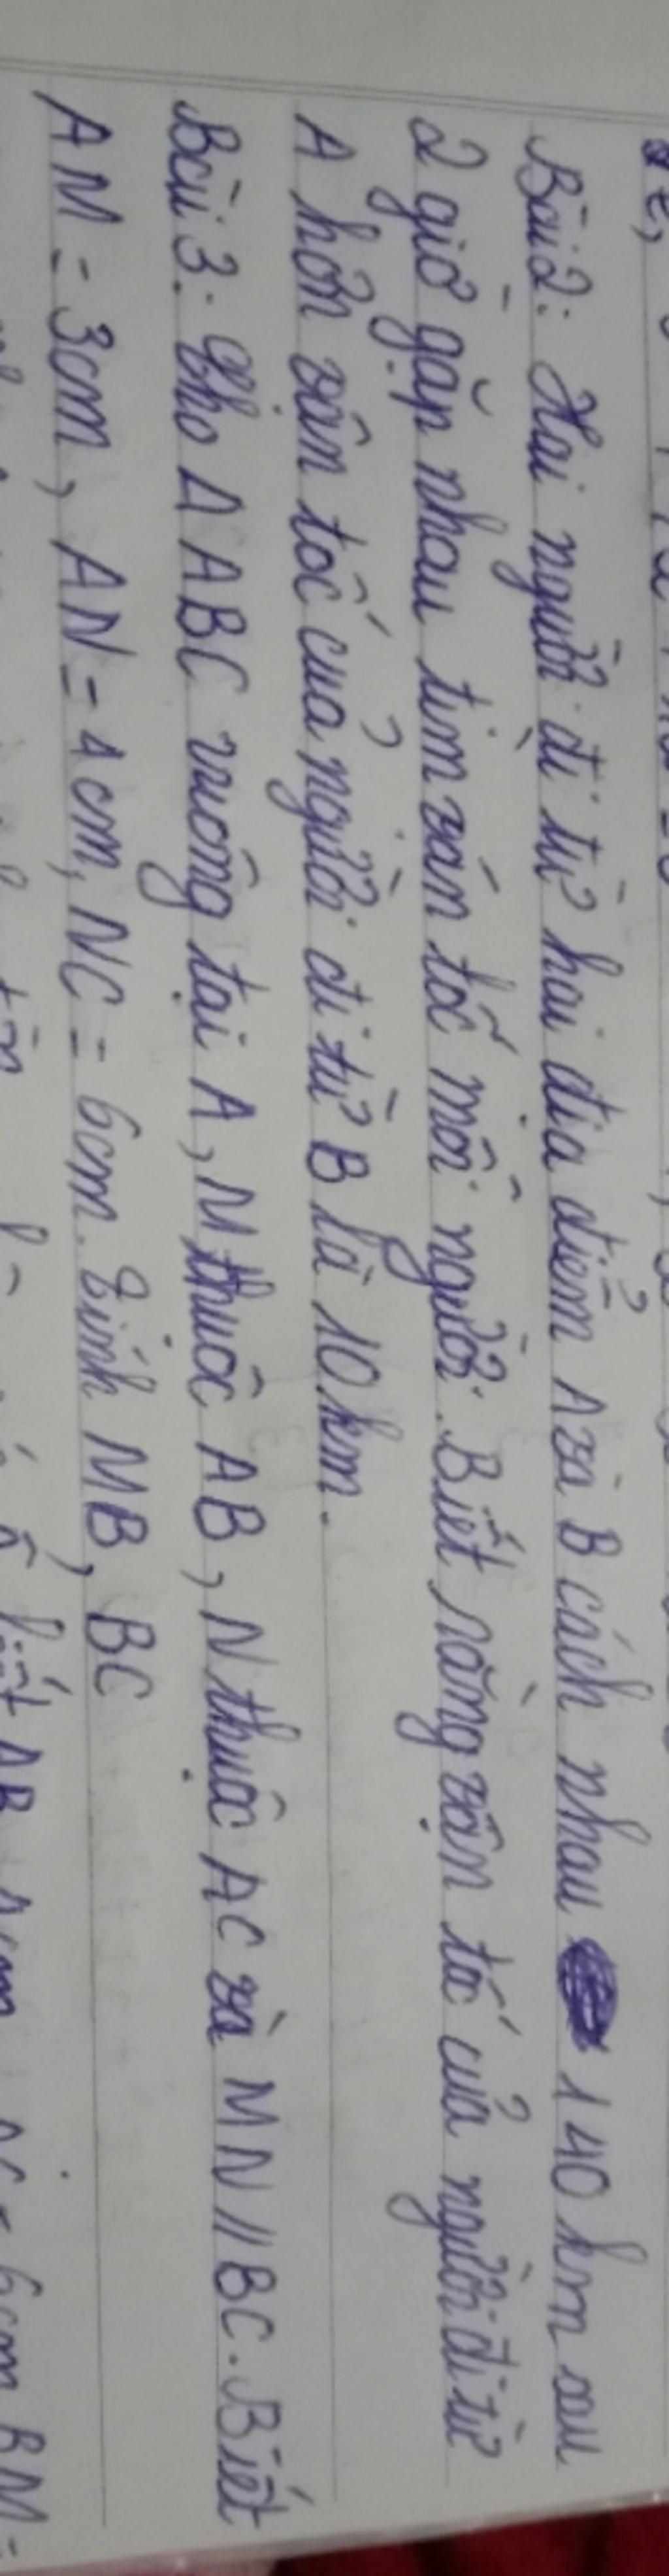 Bài 2: Hai người đi từ hai địa điểm A và B cách nhau 140 km sau
2 giờ gặp nhau tìm vận tốc mỗi người. Biết rằng vận tốc của người đi từ
A hơn vận tốc của người đi từ B là 10 km.
Bài 3: Cho Δ ABC vuông tại A, M thuộc AB, N thuộc AC và MN // BC. Biết
AM = 3cm, AN = 4cm, NC = 6cm. Tính MB, BC